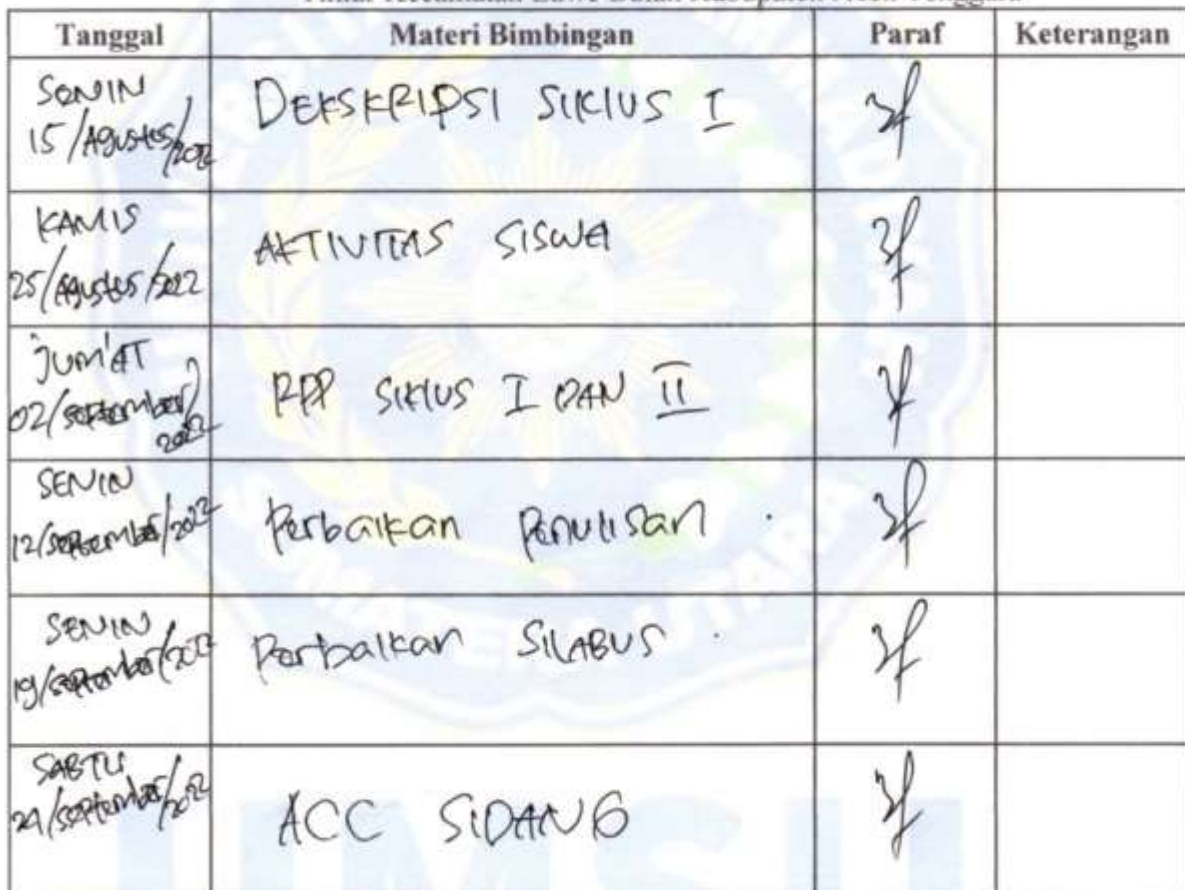 Tanggal Materi Bimbingan Paraf Keterangan
SENIN
15/Agustus/2022
DEKSKRIPSI SIKLUS I
KAMIS
25/Agustus/2022
AKTIVITAS SISWA
JUM'AT
02/September/2022
RPP SIKLUS I DAN II
SENIN
12/September/2022
Perbaikan Penulisan
SENIN
19/September/2022
Perbaikan SILABUS
SABTU
24/September/2022
ACC SIDANG
UMSU